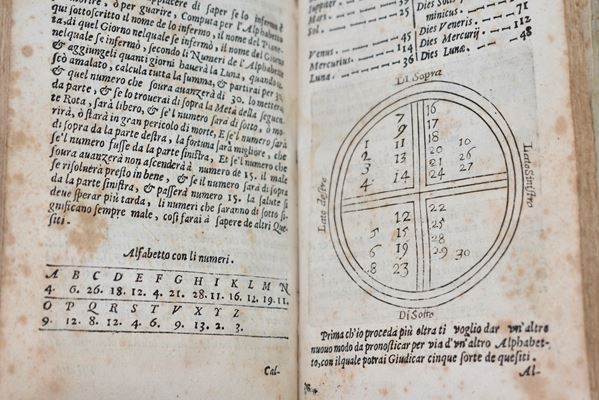 piacere di saper se lo infermo è
ò per guarire, Computa per l'Alphabetto
qui sottoscritto il nome de lo infermo, il nome del Piane-
ta, di quel Giorno nelquale se infermò, il nome del Giorno
nelquale se infermò, secondo li Numeri de l'Alphabetto
& aggiungeli quanti giorni hauerà la Luna, quando ca-
scò amalato, calcula tutta la summa, & partirai per 30.
& quel numero che soura auanzerà di 30. lo metterai
da parte, & se lo trouerai di sopra la Metà della seguen-
te Rota, sarà libero, & se'l numero sarà di sotto, ò mo-
rirà, ò starà in gran pericolo di morte, E se'l numero sarà
di sopra da la parte destra, la fortuna sarà migliore, che
se'l numero fusse da la parte sinistra, Et se'l numero che
soura auanzerà non ascenderà al numero de 15. il male
se risoluerà presto in bene, & se il numero sarà di sopra
da la parte sinistra, & passerà numero 15. la salute si
deue sperar più tarda, li numeri che saranno di sotto si-
gnificano sempre male, così farai à sapere de altri Que-
siti.
Alfabetto con li numeri.
A B C D E F G H I K L M N
4. 6. 26. 18. 12. 4. 21. 28. 11. 16. 12. 19. 11.
O P Q R S T V X Y Z
9. 12. 8. 12. 4. 6. 9. 13. 2. 3.
Cal-
Iuppiter
Mars 25
Sol. 
Venus. 45
Mercurius. 114
Luna. 36
Dies Solis
minicus.
Dies Veneris. 112
Dies Mercurij
Dies Lunæ. 48
Di Sopra
7 16
9 17
1 11 18 10
2 13 20 26
3 21 27
4 14 24
Lato destro
Lato Sinistro
12 22
5 15 25
6 19 28
8 23 29 30
Di Sotto
Prima ch'io proceda più oltra ti voglio dar vn'altro
nuouo modo da pronosticar per via d'vn'altro Alphabet-
to, con ilquale potrai Giudicar cinque sorte de quesiti.
Al-